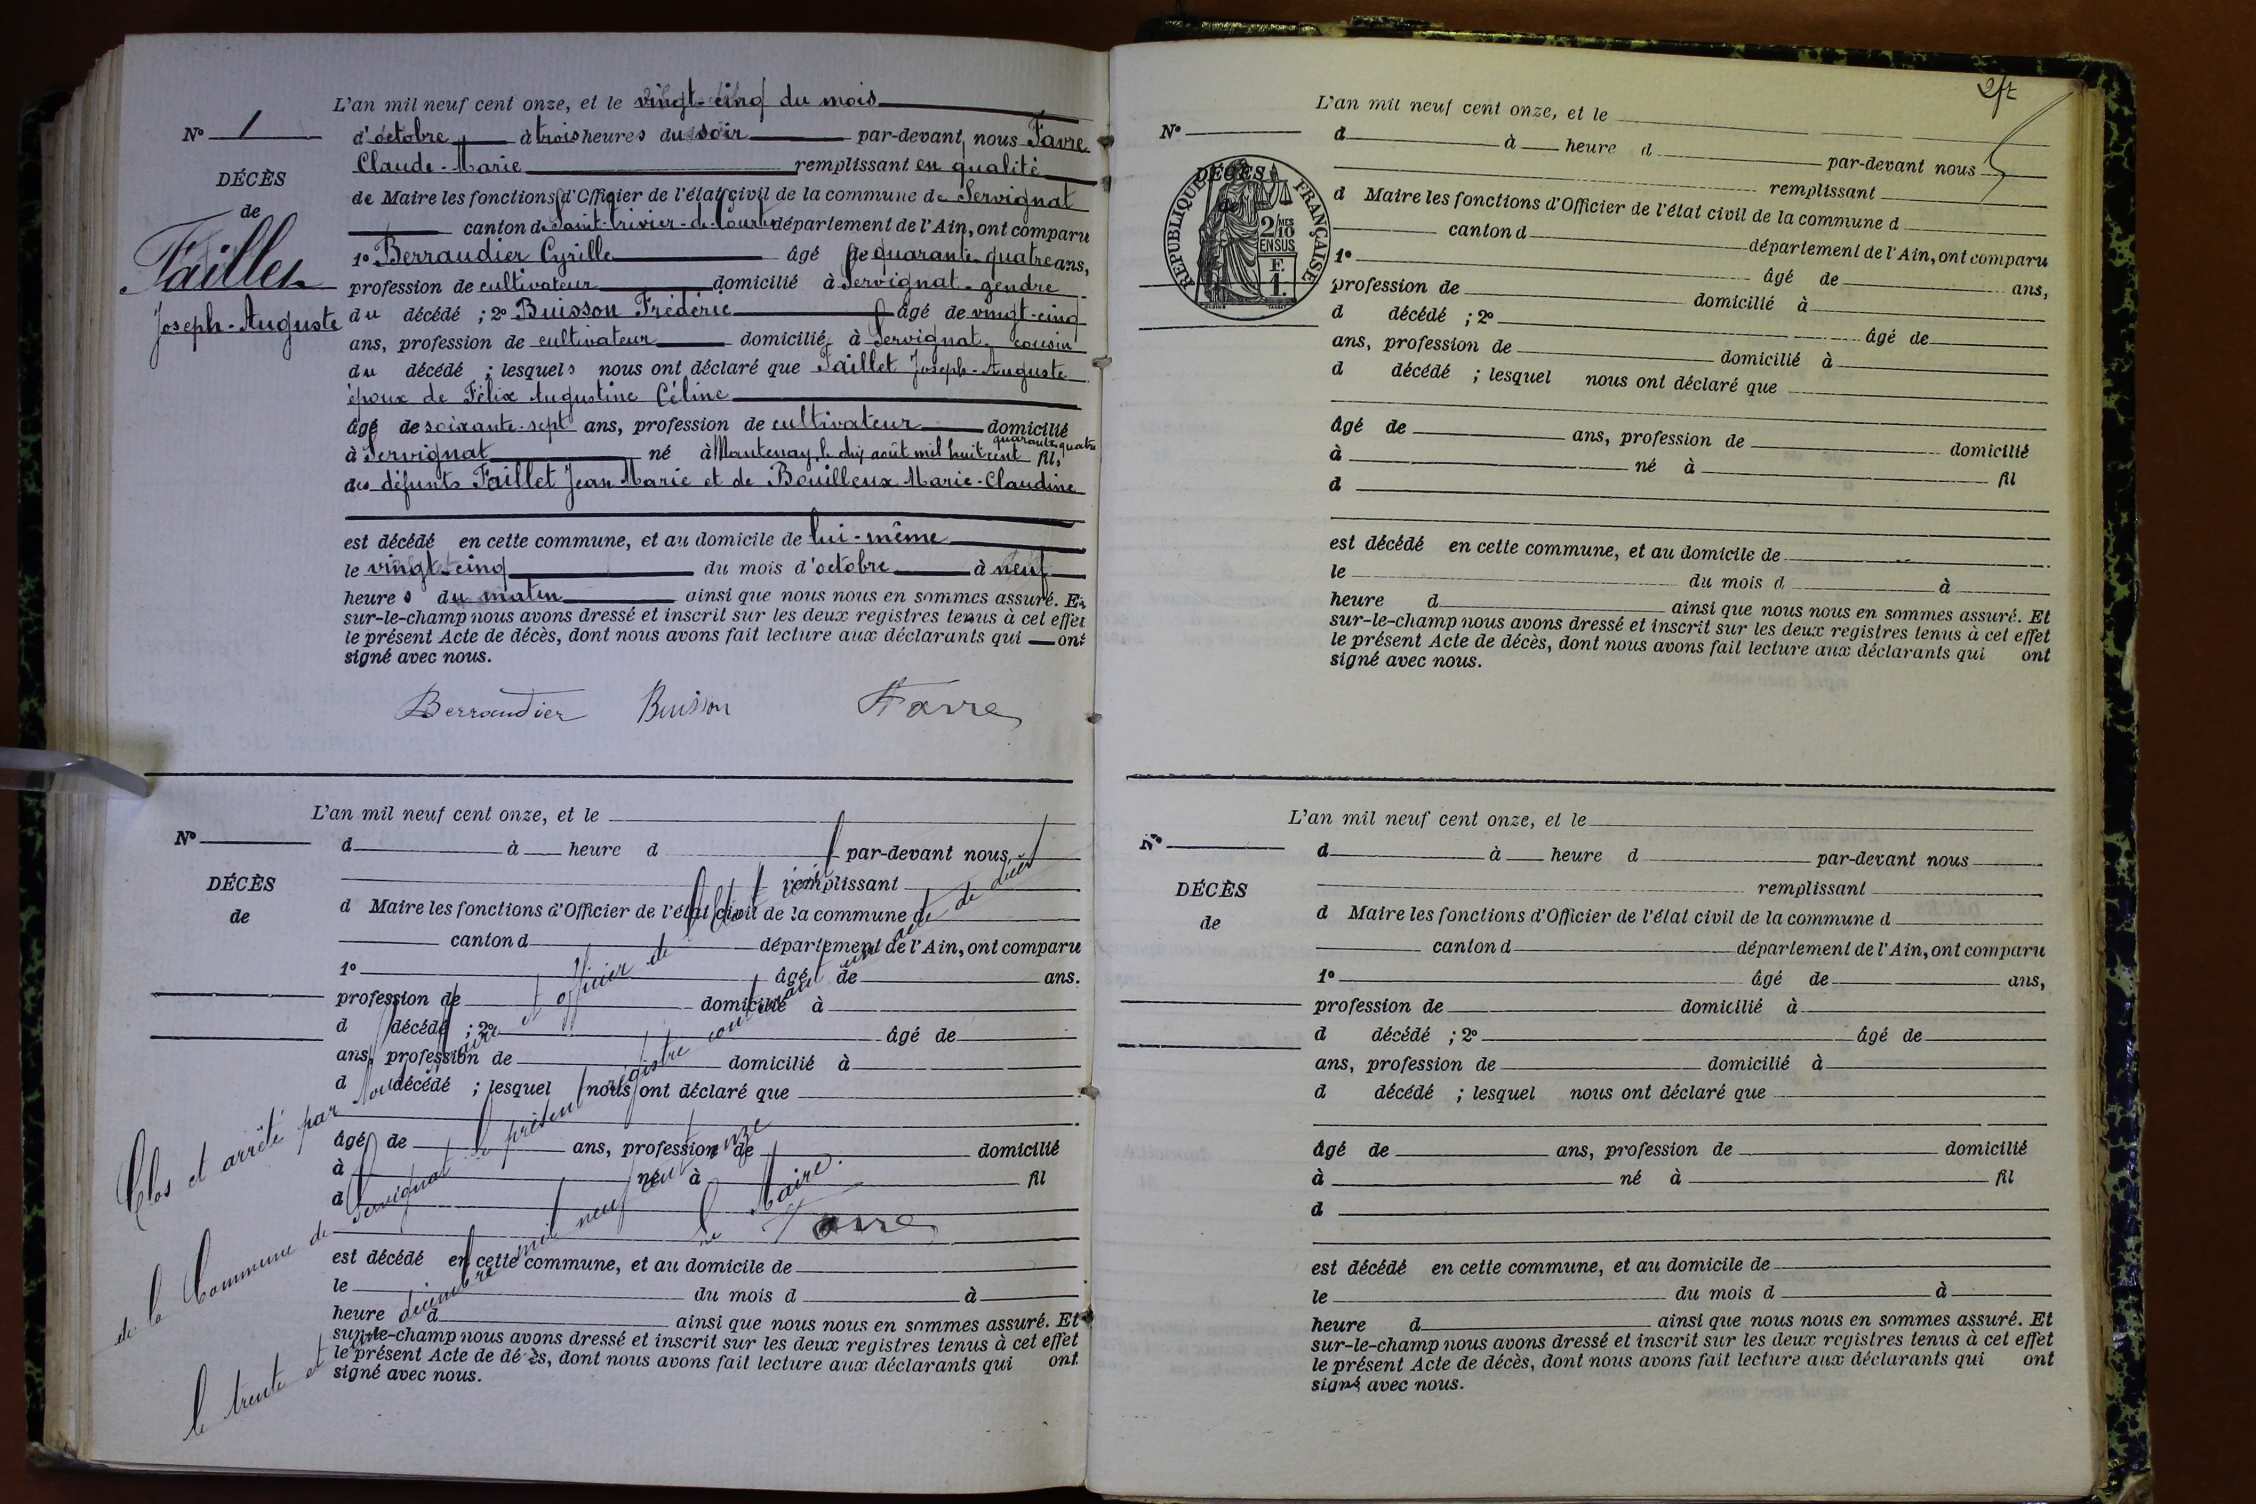 L'an mil neuf cent onze, et le vingt-cinq du mois
N° 1
d'octobre à trois heures du soir par-devant nous Favre
Claude-Marie remplissant en qualité
DÉCÈS
de Maire les fonctions d'Officier de l'état civil de la commune de Servignat
de
canton de Saint-Trivier-de-Courtes département de l'Ain, ont comparu
Faillet
1° Berraudier Cyrille âgé de quarante-quatre ans,
profession de cultivateur domicilié à Servignat gendre
Joseph-Auguste
du décédé ; 2° Buisson Frédéric âgé de vingt-cinq
ans, profession de cultivateur domicilié à Servignat cousin
du décédé ; lesquels nous ont déclaré que Faillet Joseph-Auguste
époux de Félix Augustine Céline
âgé de soixante-sept ans, profession de cultivateur domicilié
à Servignat né à Mantenay, le dix août mil huit cent quarante quatre fils
des défunts Faillet Jean Marie et de Bouilleux Marie-Claudine
est décédé en cette commune, et au domicile de lui-même
le vingt-cinq du mois d'octobre à neuf
heures du matin ainsi que nous nous en sommes assuré. Et
sur-le-champ nous avons dressé et inscrit sur les deux registres tenus à cet effet
le présent Acte de décès, dont nous avons fait lecture aux déclarants qui ont
signé avec nous.
Berraudier Buisson Favre
L'an mil neuf cent onze, et le
N°
d à heure d par-devant nous
remplissant
DÉCÈS
d Maire les fonctions d'Officier de l'état civil de la commune d
de
canton d département de l'Ain, ont comparu
1° âgé de ans.
profession de domicilié à
d décédé ; 2° âgé de
ans, profession de domicilié à
d décédé ; lesquel nous ont déclaré que
âgé de ans, profession de domicilié
à né à fil
d
est décédé en cette commune, et au domicile de
le du mois d à
heure d ainsi que nous nous en sommes assuré. Et
sur-le-champ nous avons dressé et inscrit sur les deux registres tenus à cet effet
le présent Acte de décès, dont nous avons fait lecture aux déclarants qui ont
signé avec nous.
Clos et arrêté par Nous Maire et officier de l'Etat civil
de la Commune de Servignat le présent registre contenant un acte de décès
le trente et décembre mil neuf cent onze
Le Maire.
Favre
L'an mil neuf cent onze, et le
N°
d à heure d par-devant nous
remplissant
DÉCÈS
de
RÉPUBLIQUE FRANÇAISE
2/10 MES
EN SUS
F.
1.
d Maire les fonctions d'Officier de l'état civil de la commune d
canton d département de l'Ain, ont comparu
1° âgé de ans,
profession de domicilié à
d décédé ; 2° âgé de
ans, profession de domicilié à
d décédé ; lesquel nous ont déclaré que
âgé de ans, profession de domicilié
à né à fil
d
est décédé en cette commune, et au domicile de
le du mois d à
heure d ainsi que nous nous en sommes assuré. Et
sur-le-champ nous avons dressé et inscrit sur les deux registres tenus à cet effet
le présent Acte de décès, dont nous avons fait lecture aux déclarants qui ont
signé avec nous.
L'an mil neuf cent onze, et le
N°
d à heure d par-devant nous
remplissant
DÉCÈS
d Maire les fonctions d'Officier de l'état civil de la commune d
de
canton d département de l'Ain, ont comparu
1° âgé de ans,
profession de domicilié à
d décédé ; 2° âgé de
ans, profession de domicilié à
d décédé ; lesquel nous ont déclaré que
âgé de ans, profession de domicilié
à né à fil
d
est décédé en cette commune, et au domicile de
le du mois d à
heure d ainsi que nous nous en sommes assuré. Et
sur-le-champ nous avons dressé et inscrit sur les deux registres tenus à cet effet
le présent Acte de décès, dont nous avons fait lecture aux déclarants qui ont
signé avec nous.